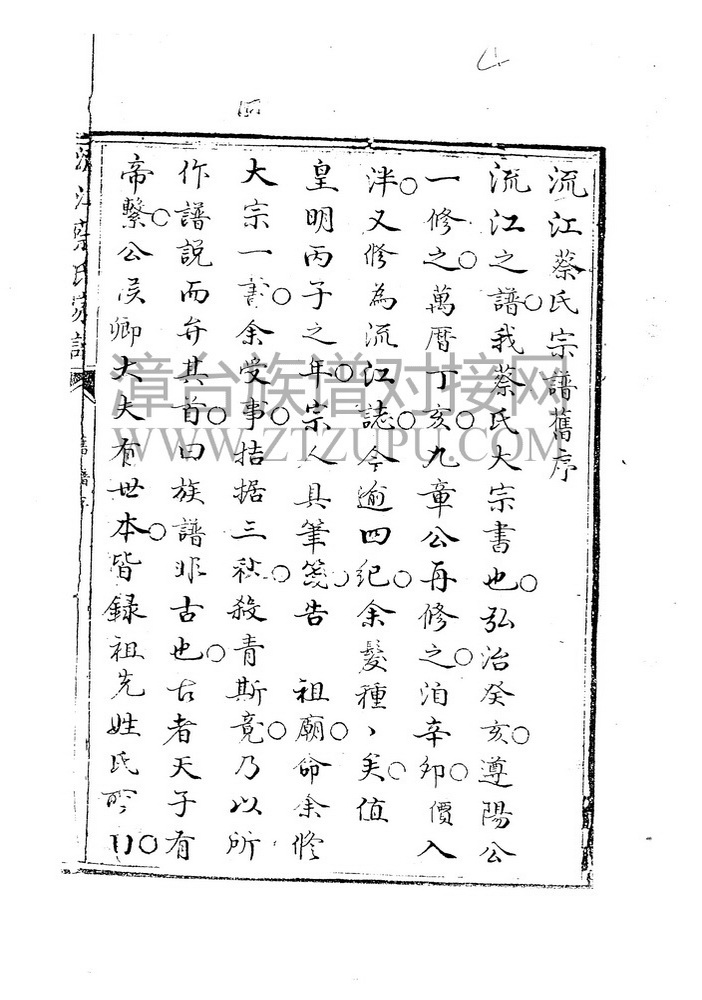 流江蔡氏宗譜舊序
流江之譜○我蔡氏大宗書也○弘治癸亥○遵陽公
一修之○萬曆丁亥○九章公再修之○洎辛卯○價入
泮○又修為流江誌○今逾四紀○余髮種丶矣○值
皇明丙子之年○宗人具筆箋○告　祖廟○命余修
大宗一書○余受事○拮据三秋○殺青斯竟○乃以所
作譜說而弁其首○曰族譜非古也○古者天子有
帝繫○公侯卿大夫有世本○皆録祖先姓氏所
江蔡氏宗譜
舊譜序
漳台族谱对接网
WWW.ZTZUPU.COM
四